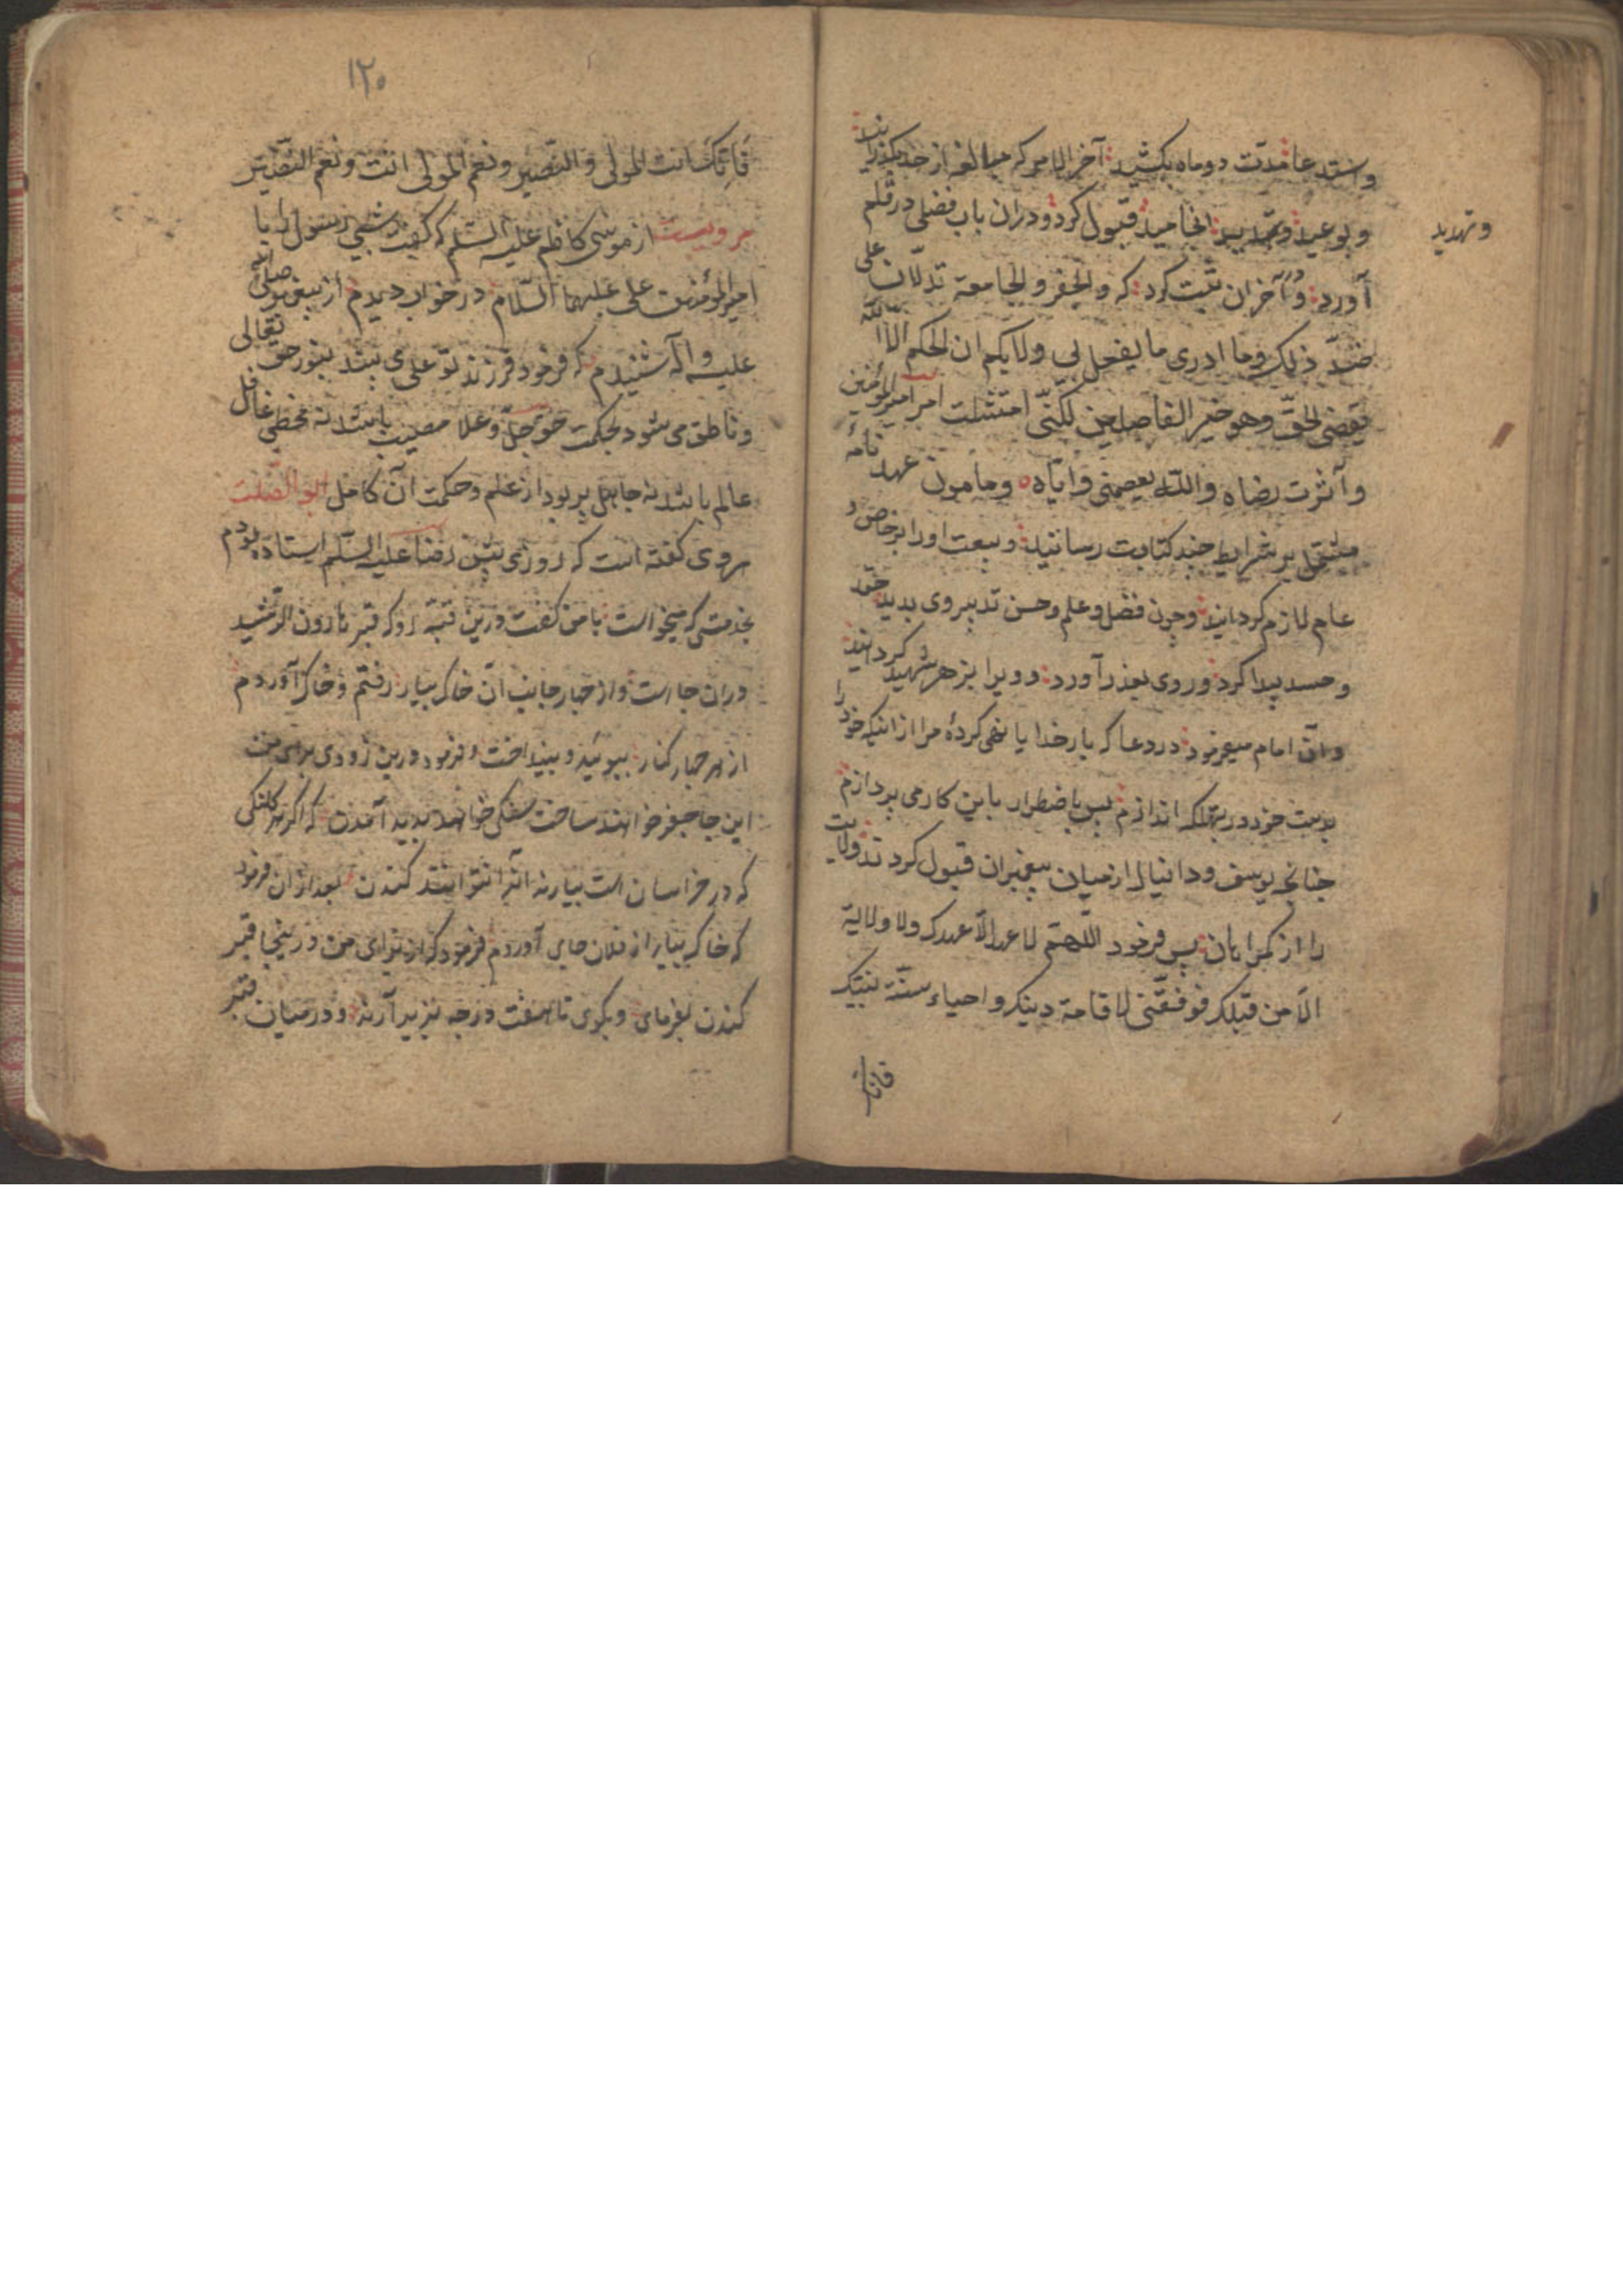 واستدعا مدّت دو ماه بکشید آخر الامر که مبالغه از حد بگذرانید
و بوعید و تهدید انجامید قبول کرد و دران باب فصلی در قلم
و تهدید
آورد و در آخر ان ثبت کرد که والجفر والجامعة تدلّان علی
ضدّ ذلک وما ادری ما یفعل لی ولا بکم ان الحکم الّا لله
یقضی الحقّ وهو خیر الفاصلین لکنّی امتثلت امر امیر المؤمنین
وآثرت رضاه والله یعصمنی وایّاه و مامون عهد نامهٔ
مشتمل بر شرایط چند کتابت رسانید و بیعت او را بر خاص و
عام لازم گردانید و چون فضل و علم و حسن تدبیر وی بدید حقد
و حسد پیدا کرد و روی بغدر آورد و ویرا بزهر شهید گردانید
وان امام میفرمود در دعا که بار خدایا نهی کردهٔ مرا از اینکه خود را
بدست خود در تهلکه اندازم پس باضطرار باین کار می پردازم
چنانچه یوسف و دانیال از میان پیغمبران قبول کردند ولایت
را از گمراهان پس فرمود اللّهمّ لا عهد الّا عهدک ولا ولایة
الّا من قبلک فوفّقنی لاقامة دینک واحیاء سنّة نبیّک
فانّک
۱۲۰
فَاِنّکَ انت المولی والنّصیر ونعم المولی انت ونعم النّصیر
مرویست از موسی کاظم علیه السّلم که گفت شبی رسول را با
امیر المؤمنین علی علیهما السّلام در خواب دیدم از پیغمبر صلی الله
علیه وآله شنیدم که فرمود فرزند تو علی می بیند بنور حق تعالی
و ناطق می شود بحکمت حق جلّ وعلا مصیب باشد نه مخطی غافل
عالم باشد نه جاهل پر بود از علم و حکمت آن کامل ابو الصّلت
هروی گفته است که روزی پیش رضا علیه السّلم ایستاده بودم
بخدمتی که میخواست با من گفت درین قبّه رو که قبر هارون الرّشید
دران جا است و از چهار جانب آن خاک بیار رفتم و خاک آوردم
از هر چهار کنار ببوئید و بینداخت و فرمود درین زودی برای من
این جا حفر خواهند ساخت سنگی خواهد بدید آمدن که اگر هر کلنگی
که در خراسان است بیارند آنرا نتوانند کندن بعد از ان فرمود
که خاک بیار از فلان جای آوردم فرمود که از برای من درینجا قبر
کندن بفرمای و بگوی تا هفت درجه بزیر آرند و در میان قبر